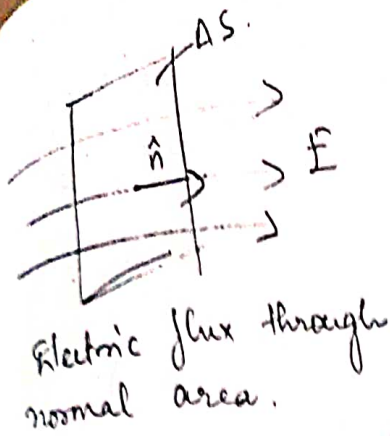 ΔS.
n̂
E
Electric flux through
normal area.